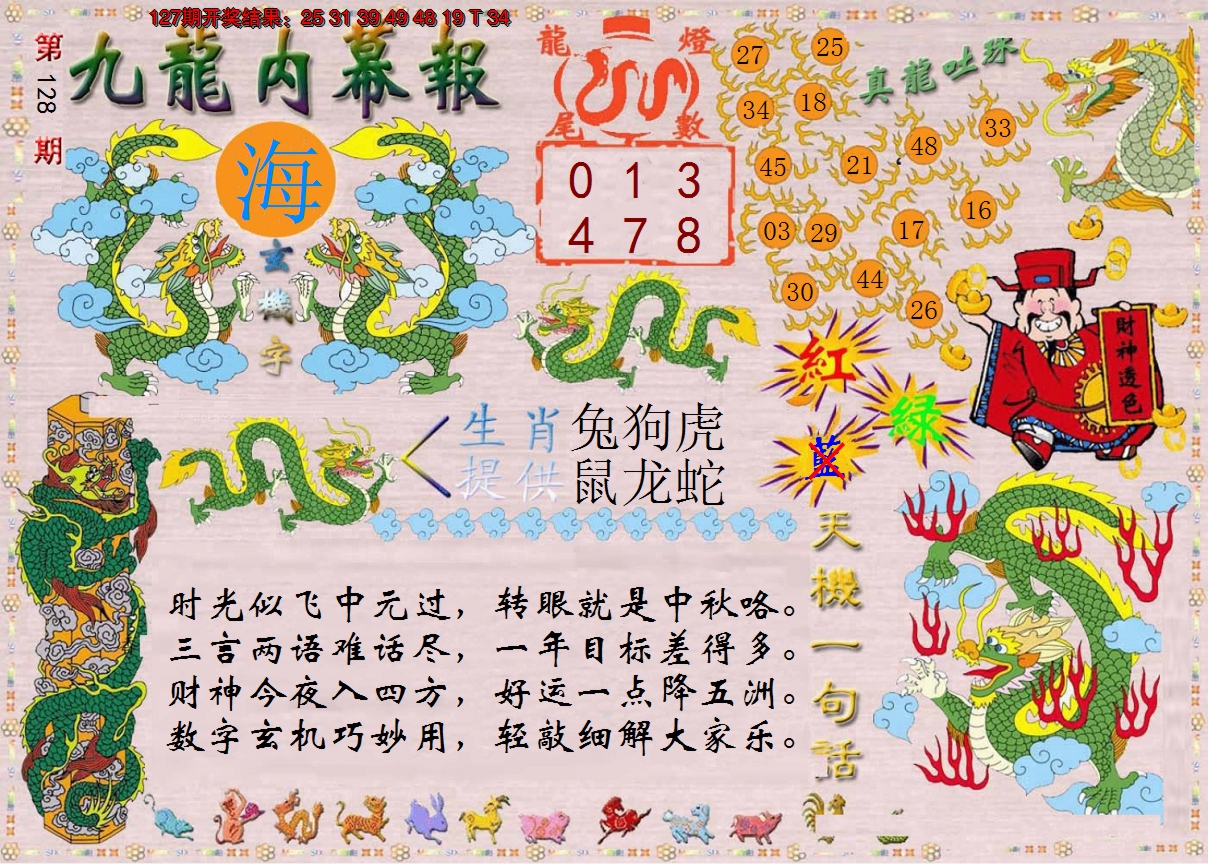 127期开奖结果：25 31 39 49 48 19 T 34
第128期
九龍内幕報
海
玄機字
龍燈
尾數
0 1 3
4 7 8
真龍吐珠
27 25
34 18
45 21 48 33
03 29 17 16
30 44 26
財神透色
紅
綠
藍
生肖 兔狗虎
提供 鼠龙蛇
时光似飞中元过，转眼就是中秋咯。
三言两语难话尽，一年目标差得多。
财神今夜入四方，好运一点降五洲。
数字玄机巧妙用，轻敲细解大家乐。
天機一句話